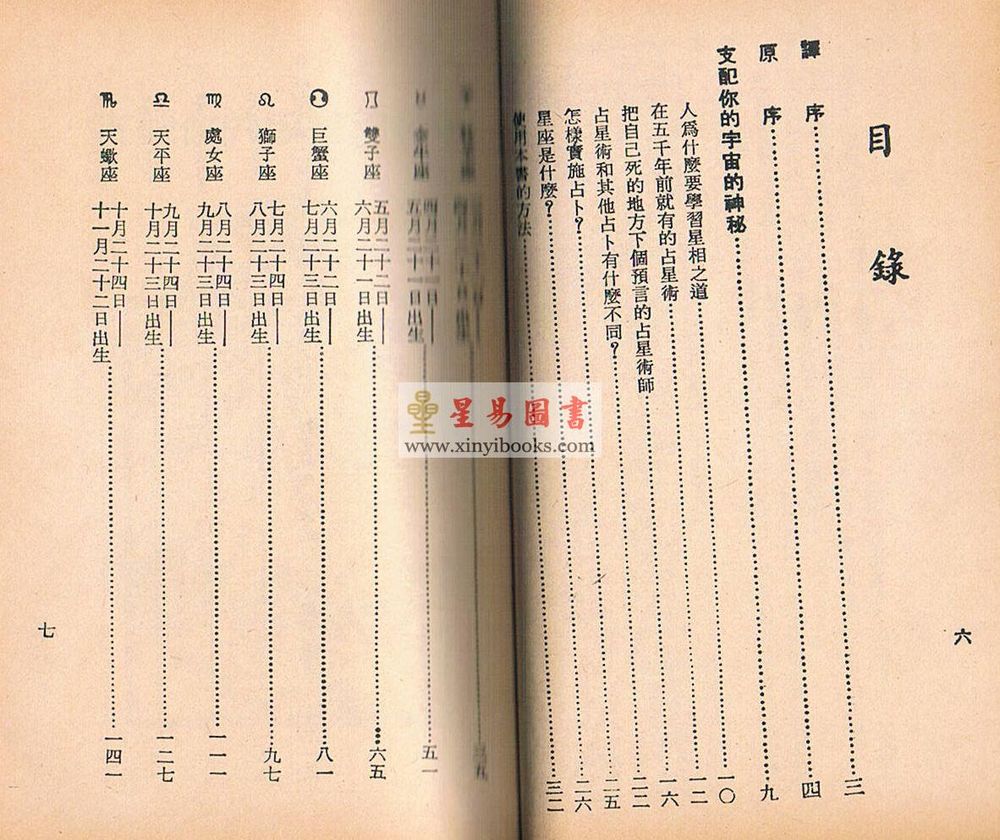 目錄
譯序……三
原序……四
支配你的宇宙的神秘……九
人爲什麼要學習星相之道……一〇
在五千年前就有的占星術……一二
把自己死的地方下個預言的占星術師……一六
占星術和其他占卜有什麼不同？……二二
怎樣實施占卜？……二五
星座是什麼？……二六
使用本書的方法……三二
六
牛座 四月二十一日——
五月二十一日出生……五一
♊ 雙子座 五月二十二日——
六月二十一日出生……六五
巨蟹座 六月二十二日——
七月二十三日出生……八一
♌ 獅子座 七月二十四日——
八月二十三日出生……九七
♍ 處女座 八月二十四日——
九月二十三日出生……一一一
♎ 天平座 九月二十四日——
十月二十三日出生……一二七
♏ 天蠍座 十月二十四日——
十一月二十二日出生……一四一
七
星易圖書
www.xinyibooks.com